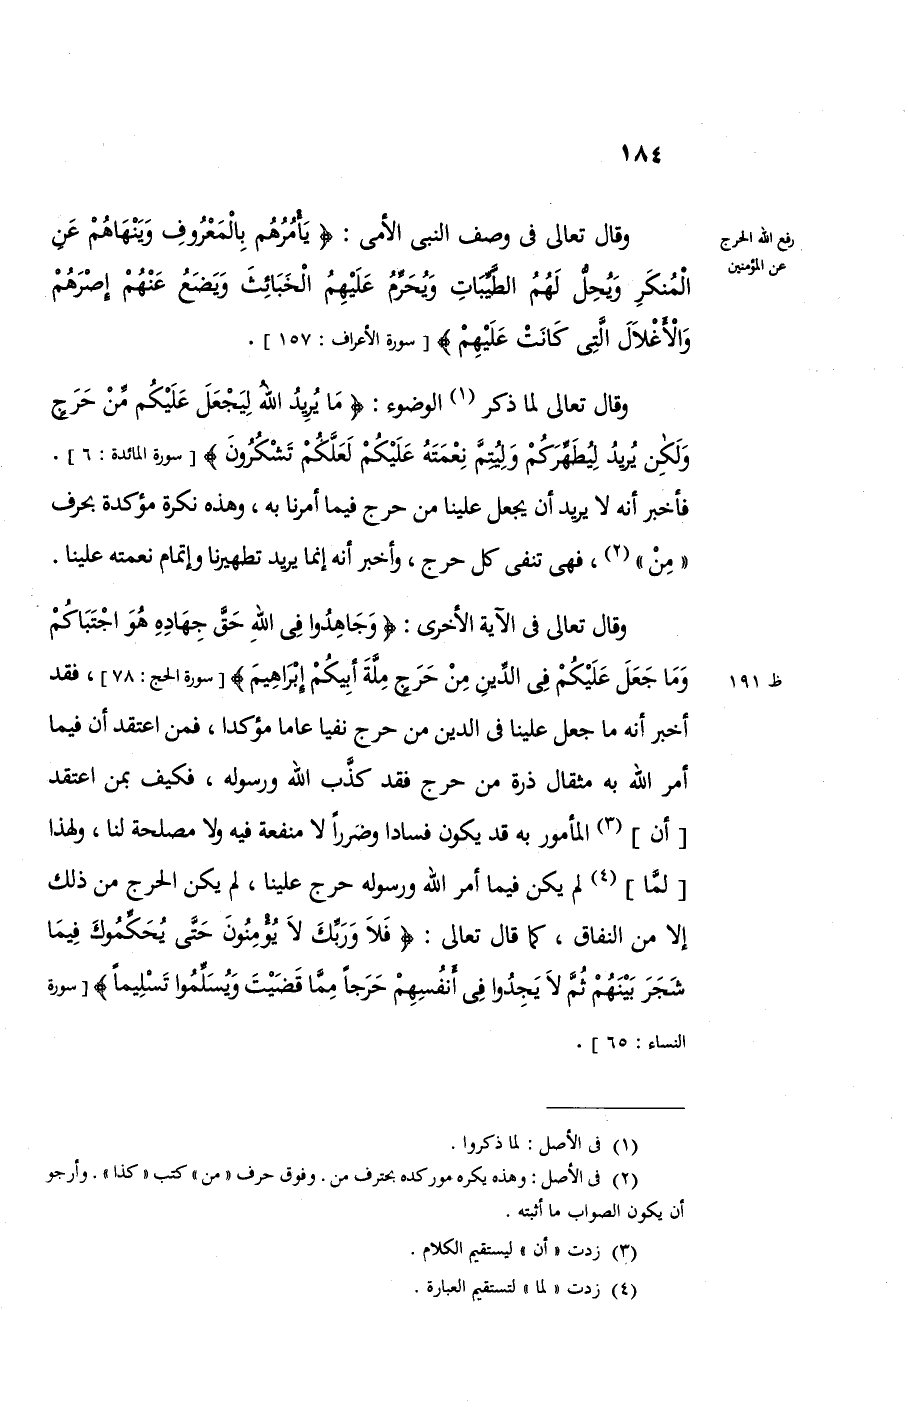 ١٨٤
رفع الله الحرج
عن المؤمنين
وقال تعالى فى وصف النبى الأمى : ﴿ يَأْمُرُهُم بِالْمَعْرُوفِ وَيَنْهَاهُمْ عَنِ
الْمُنكَرِ وَيُحِلُّ لَهُمُ الطَّيِّبَاتِ وَيُحَرِّمُ عَلَيْهِمُ الْخَبَائِثَ وَيَضَعُ عَنْهُمْ إِصْرَهُمْ
وَالْأَغْلاَلَ الَّتِى كَانَتْ عَلَيْهِمْ ﴾ [ سورة الأعراف : ١٥٧ ] .
وقال تعالى لما ذكر (١) الوضوء : ﴿ مَا يُرِيدُ اللهُ لِيَجْعَلَ عَلَيْكُم مِّنْ حَرَجٍ
وَلَكٰن يُرِيدُ لِيُطَهِّرَكُمْ وَلِيُتِمَّ نِعْمَتَهُ عَلَيْكُمْ لَعَلَّكُمْ تَشْكُرُونَ ﴾ [ سورة المائدة : ٦ ] .
فأخبر أنه لا يريد أن يجعل علينا من حرج فيما أمرنا به ، وهذه نكرة مؤكدة بحرف
« مِنْ » (٢) ، فهى تنفى كل حرج ، وأخبر أنه إنما يريد تطهيرنا وإتمام نعمته علينا .
وقال تعالى فى الآية الأخرى : ﴿ وَجَاهِدُوا فِى اللهِ حَقَّ جِهَادِهِ هُوَ اجْتَبَاكُمْ
وَمَا جَعَلَ عَلَيْكُمْ فِى الدِّينِ مِنْ حَرَجٍ مِلَّةَ أَبِيكُمْ إِبْرَاهِيمَ ﴾ [ سورة الحج : ٧٨ ] ، فقد
ظ ١٩١
أخبر أنه ما جعل علينا فى الدين من حرج نفيا عاما مؤكدا ، فمن اعتقد أن فيما
أمر الله به مثقال ذرة من حرج فقد كذَّب الله ورسوله ، فكيف بمن اعتقد
[ أن ] (٣) المأمور به قد يكون فسادا وضرراً لا منفعة فيه ولا مصلحة لنا ، ولهذا
[ لمَّا ] (٤) لم يكن فيما أمر الله ورسوله حرج علينا ، لم يكن الحرج من ذلك
إلا من النفاق ، كما قال تعالى : ﴿ فَلاَ وَرَبِّكَ لاَ يُؤْمِنُونَ حَتَّى يُحَكِّمُوكَ فِيمَا
شَجَرَ بَيْنَهُمْ ثُمَّ لاَ يَجِدُوا فِى أَنفُسِهِمْ حَرَجاً مِمَّا قَضَيْتَ وَيُسَلِّمُوا تَسْلِيماً ﴾ [ سورة
النساء : ٦٥ ] .
(١) فى الأصل : لما ذكروا .
(٢) فى الأصل : وهذه يكره موركده بحترف من . وفوق حرف « من » كتب « كذا » . وأرجو
أن يكون الصواب ما أثبته .
(٣) زدت « أن » ليستقيم الكلام .
(٤) زدت « لما » لتستقيم العبارة .